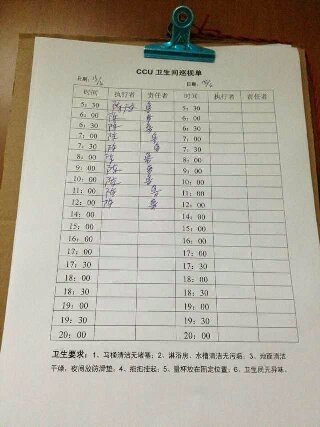 CCU 卫生间巡视单
日期： 日期：
时间 执行者 责任者 时间 执行者 责任者
5：30 5：30
6：00 陈 6：00
6：30 陈 6：30
7：00 陈 7：00
7：30 陈 7：30
8：00 陈 8：00
9：00 陈 9：00
10：00 陈 10：00
11：00 陈 11：00
12：00 陈 12：00
14：00 14：00
15：00 15：00
16：00 16：00
17：00 17：00
17：30 17：30
18：00 18：00
18：30 18：30
19：00 19：00
19：30 19：30
20：00 20：00
卫生要求：1、马桶清洁无堵塞；2、淋浴房、水槽清洁无污垢；3、地面清洁
干燥，夜间放防滑垫；4、拖把挂起；5、量杯放在固定位置；6、卫生间无异味。